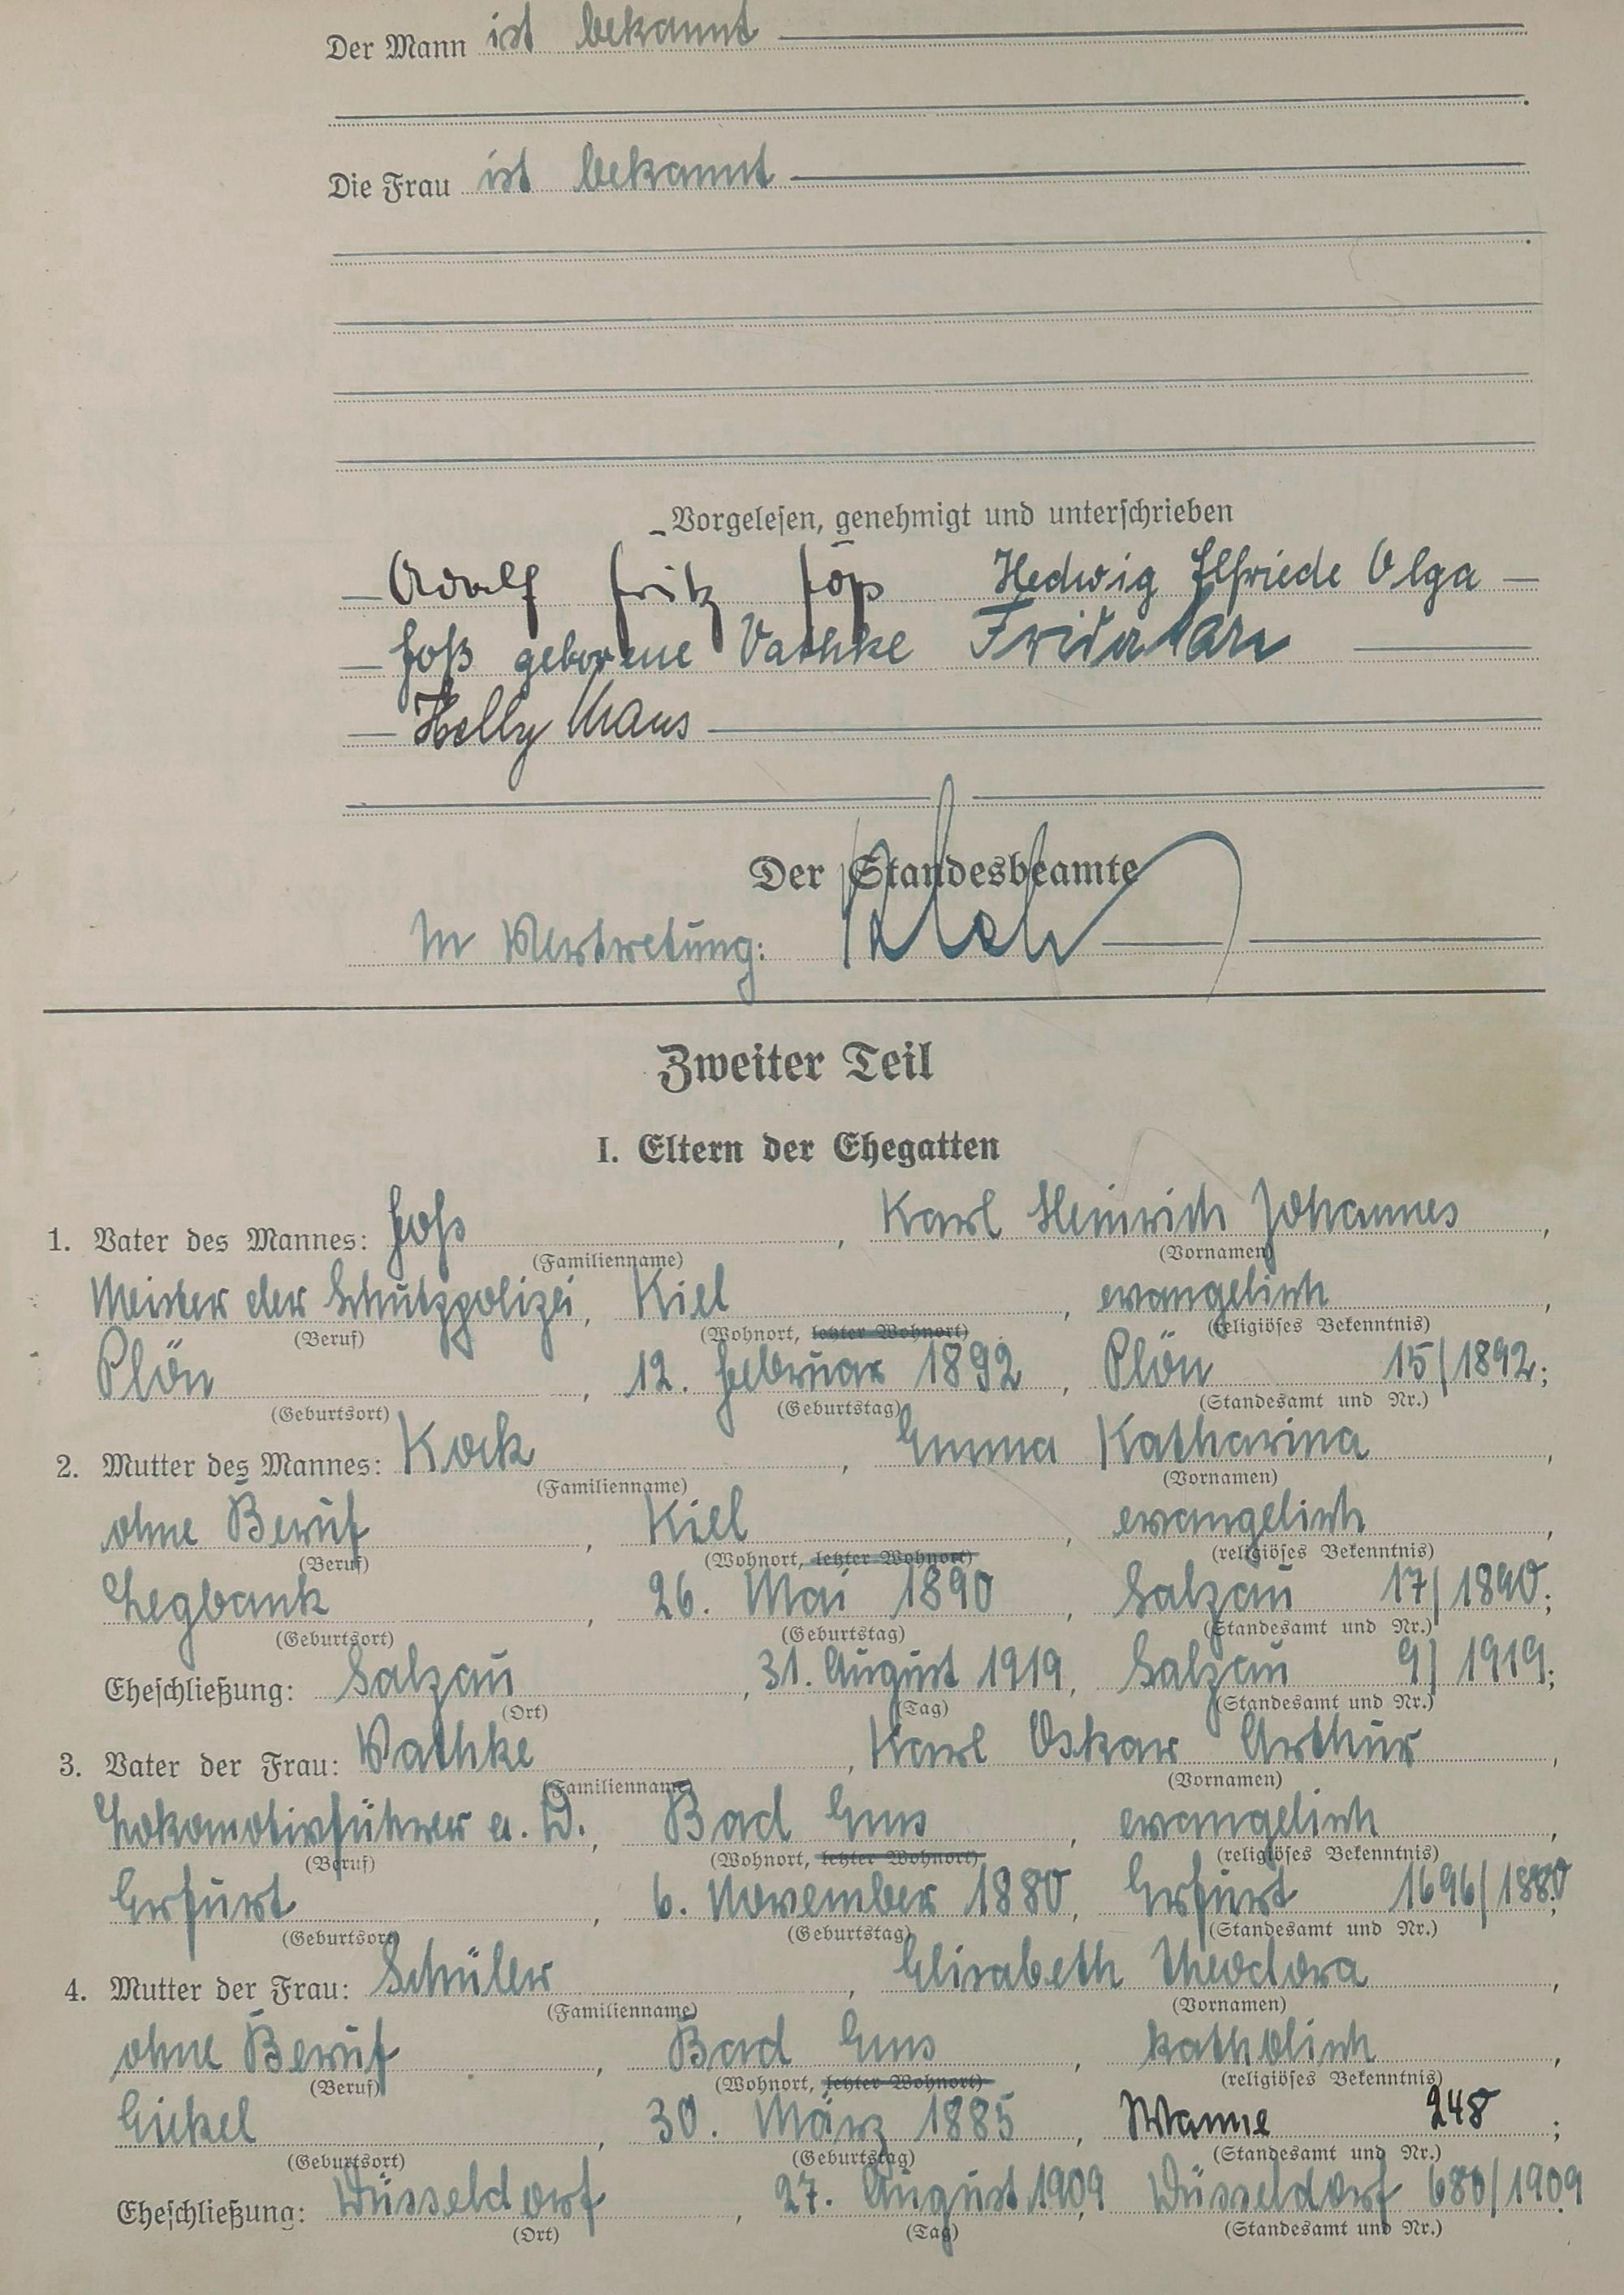 Der Mann ist bekannt
Die Frau ist bekannt
Vorgelesen, genehmigt und unterschrieben
Adolf Fritz Foß Hedwig Elfriede Olga
Foß geborene Vathke Frida
Helly Maus
Der Standesbeamte
In Vertretung:
Zweiter Teil
I. Eltern der Ehegatten
1. Vater des Mannes: Foß, Karl Heinrich Johannes,
(Familienname) (Vornamen)
Meister der Schutzpolizei, Kiel, evangelisch,
(Beruf) (Wohnort, letzter Wohnort) (religiöses Bekenntnis)
Plön, 12. Februar 1892, Plön 15/1892;
(Geburtsort) (Geburtstag) (Standesamt und Nr.)
2. Mutter des Mannes: Kock, Emma Katharina,
(Familienname) (Vornamen)
ohne Beruf, Kiel, evangelisch,
(Beruf) (Wohnort, letzter Wohnort) (religiöses Bekenntnis)
Legbank, 26. Mai 1890, Salzau 17/1890;
(Geburtsort) (Geburtstag) (Standesamt und Nr.)
Eheschließung: Salzau, 31. August 1919, Salzau 9/1919;
(Ort) (Tag) (Standesamt und Nr.)
3. Vater der Frau: Vathke, Karl Oskar Arthur,
(Familienname) (Vornamen)
Lokomotivführer a. D., Bad Ems, evangelisch,
(Beruf) (Wohnort, letzter Wohnort) (religiöses Bekenntnis)
Erfurt, 6. November 1880, Erfurt 1696/1880;
(Geburtsort) (Geburtstag) (Standesamt und Nr.)
4. Mutter der Frau: Schüler, Elisabeth Theodora,
(Familienname) (Vornamen)
ohne Beruf, Bad Ems, katholisch,
(Beruf) (Wohnort, letzter Wohnort) (religiöses Bekenntnis)
Eickel, 30. März 1885, Wanne 248;
(Geburtsort) (Geburtstag) (Standesamt und Nr.)
Eheschließung: Düsseldorf, 27. August 1909, Düsseldorf 680/1909.
(Ort) (Tag) (Standesamt und Nr.)